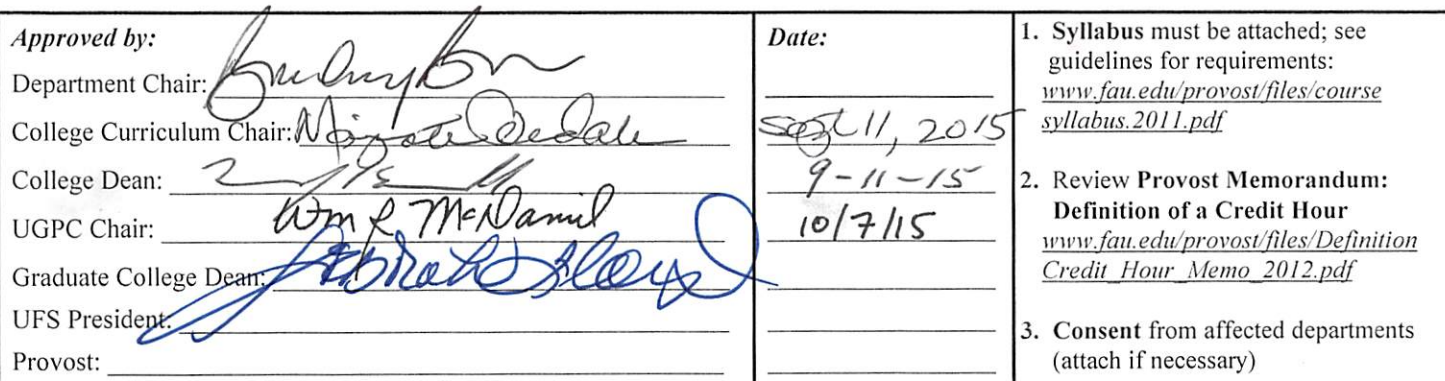 Approved by:
Department Chair:
College Curriculum Chair:
College Dean:
UGPC Chair: Wm R McDaniel
Graduate College Dean:
UFS President:
Provost:
Date:
Sept 11, 2015
9-11-15
10/7/15
1. Syllabus must be attached; see
guidelines for requirements:
www.fau.edu/provost/files/course
syllabus.2011.pdf
2. Review Provost Memorandum:
Definition of a Credit Hour
www.fau.edu/provost/files/Definition
Credit_Hour_Memo_2012.pdf
3. Consent from affected departments
(attach if necessary)